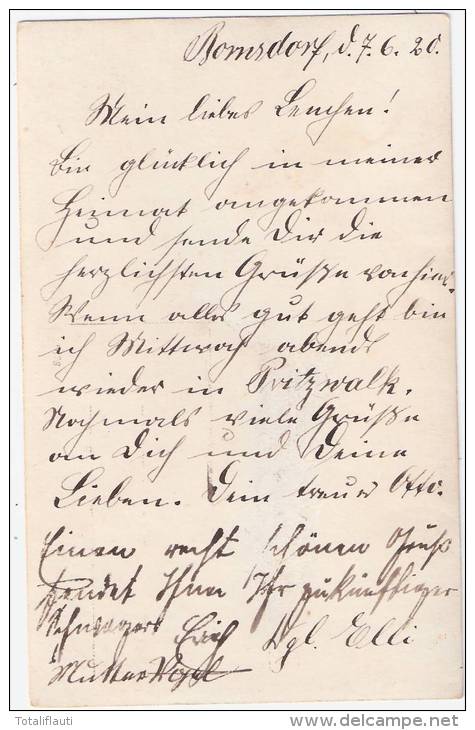 Bomsdorf, d. 7. 6. 20.
Mein liebes Lenchen!
Bin glücklich in meiner
Heimat angekommen
und sende Dir die
herzlichsten Grüße von hier.
Wenn alles gut geht bin
ich Mittwoch abend
wieder in Pritzwalk.
Nochmals viele Grüße
an Dich und Deine
Lieben. Dein treuer Otto.
Einen recht schönen Gruß
sendet Ihnen Ihr zukünftiger
Schwager Erich Vgl. Elli
Mutter Vogel
Totaliflauti
www.delcampe.net